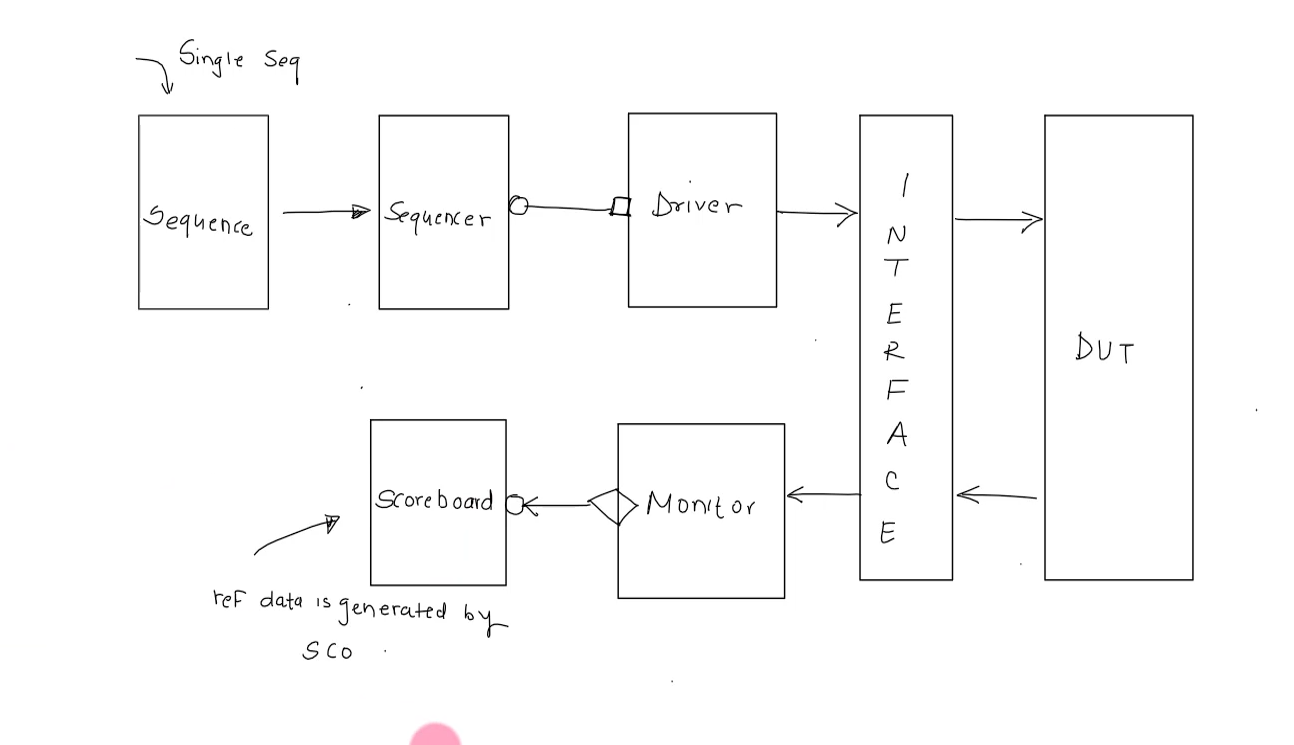 Single Seq
Sequence
Sequencer
Driver
INTERFACE
DUT
Scoreboard
Monitor
ref data is generated by
SCO